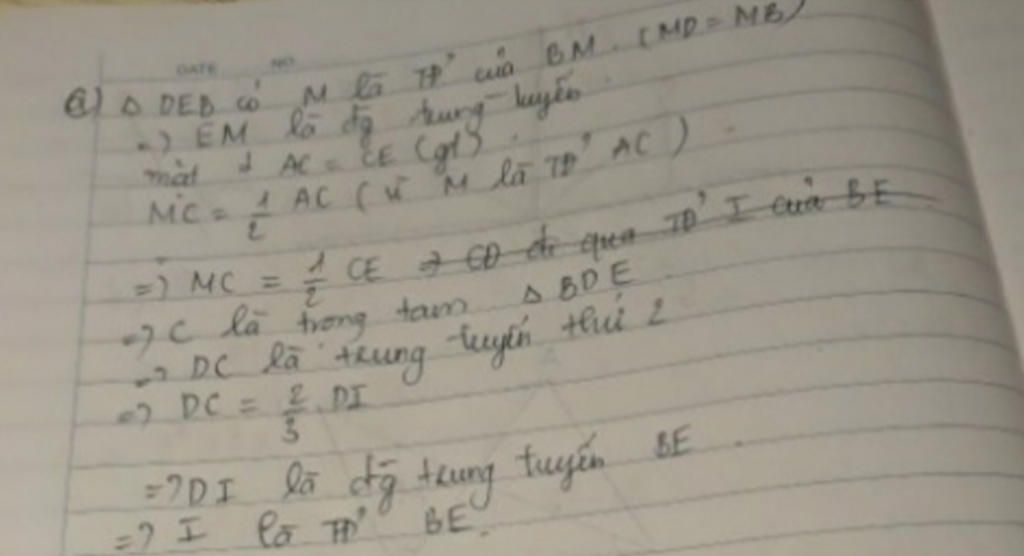 DATE NO
a) Δ DEB có M là TĐ' của BM. (MD = MB)
=> EM là đg trung tuyến
mặt ≠ AC = CE (gt).
MC = 1/2 AC (vì M là TĐ' AC)
=> MC = 1/2 CE => CD đi qua TĐ' I của BE
=> C là trong tam Δ BDE
=> DC là trung tuyến thứ 2
=> DC = 2/3 DI
=> DI là đg trung tuyến BE.
=> I là TĐ' BE.